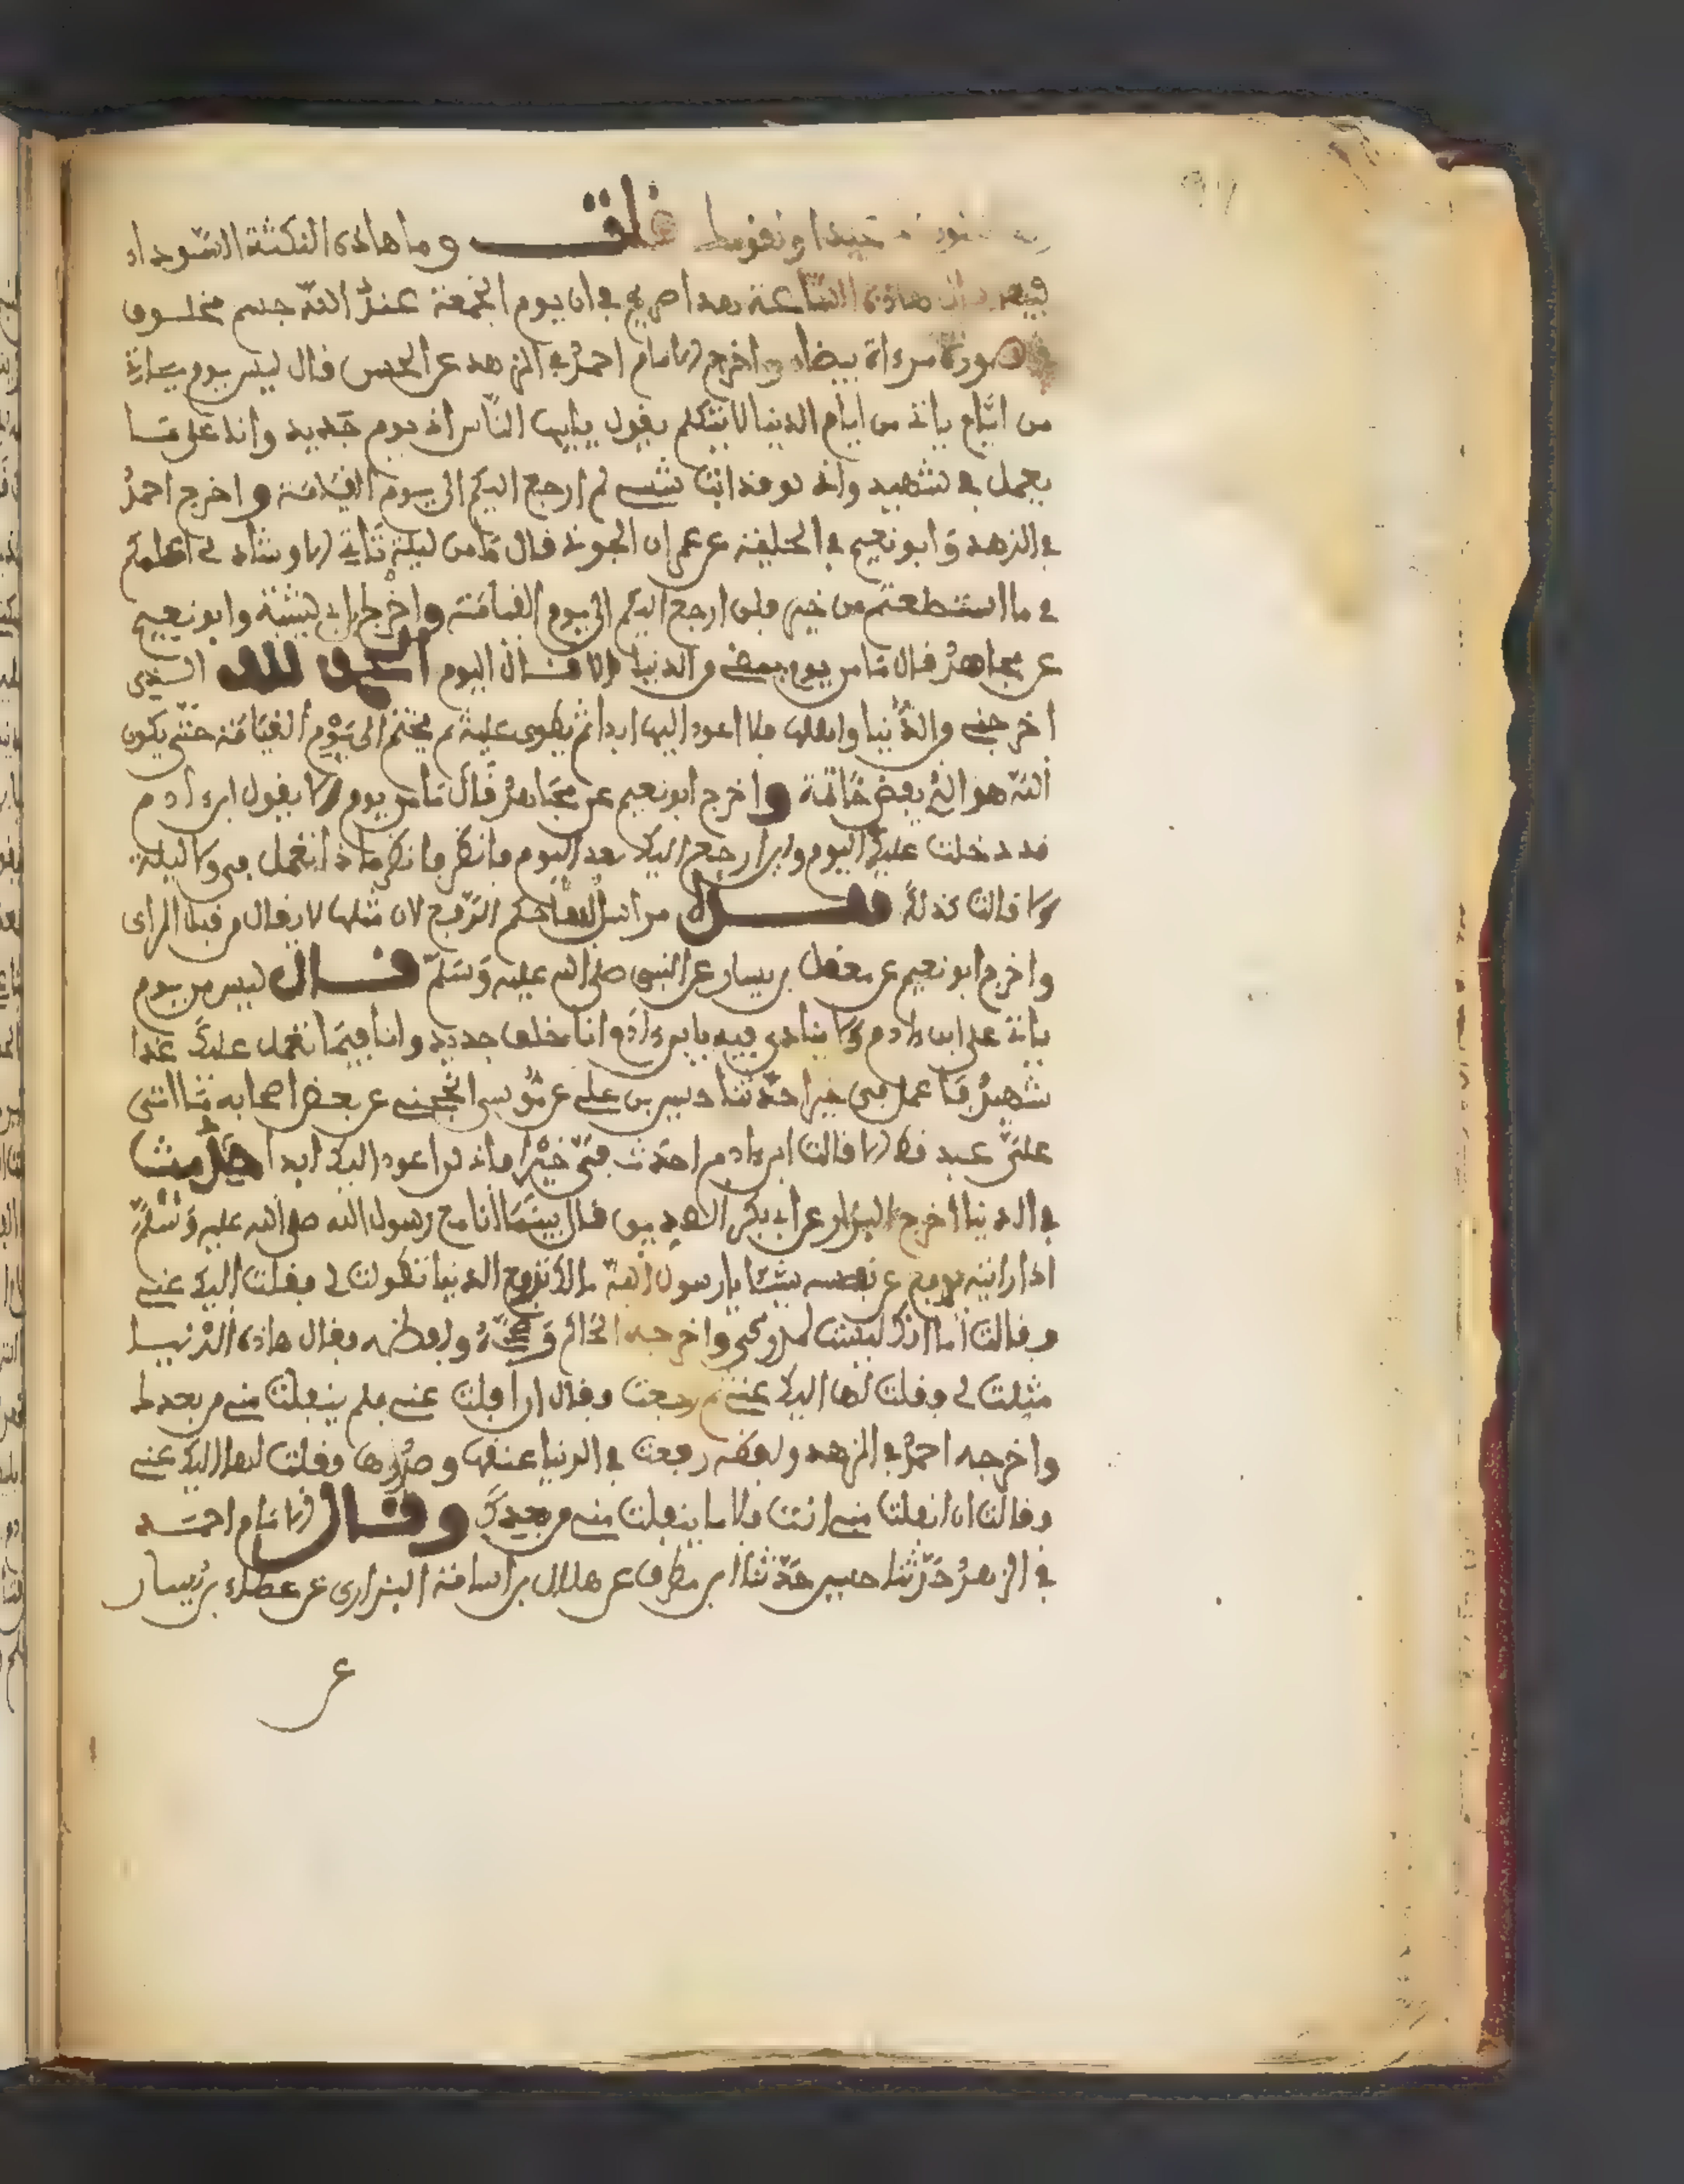 قلت وما هاذه النكتة السوداء
هاذه الساعة بهذا صريح في ان يوم الجمعة عند الله جسم مخلوق
في صورة مرءاة بيضاء واخرج الامام احمد في الزهد عن الحسن قال ليس يوم ياتي
من ايام ياتي من ايام الدنيا الا يتكلم يقول يايها الناس اني يوم جديد واني على ما
يعمل في شهيد واني لو قد ابت شمسي لم ارجع اليكم الى يوم القيامة واخرج احمد
في الزهد وابو نعيم في الحلية عن عمران الجوني قال ما من ليلة تاتي الا وتنادي اعملوا
في ما استطعتم من خير فلن ارجع اليكم الى يوم القيامة واخرج ابن ابي شيبة وابو نعيم
عن مجاهد قال ما من يوم يمضي من الدنيا الا قال اليوم الحمد لله الذي
اخرجني من الدنيا واهلها فلا اعود اليها ابدا ثم يطوى عليه ثم يختم الى يوم القيامة حتى يكون
الله هو الذي يفض خاتمه واخرج ابو نعيم عن مجاهد قال ما من يوم الا يقول ابن ءادم
قد دخلت عليك اليوم ولن ارجع اليك بعد اليوم فانظر ماذا تعمل في ولا ليلة
الا قالت كذلك مراسل لها حكم الرفع لان مثلها لا يقال من قبل الراي
واخرج ابو نعيم عن معقل بن يسار عن النبي صلى الله عليه وسلم قال ليس من يوم
ياتي على ابن ءادم الا ينادى فيه يا ابن ءادم انا خلق جديد وانا فيما تعمل عليك غدا
شهيد فاعمل في خيرا حدثنا حسين بن علي عن موسى الجهني عن بعض اصحابه ما اتى
على عبد قط الا قالت ابن ءادم احدث في خيرا فاني لن اعود اليك ابدا حديث
في الدنيا اخرج البزار عن ابي بكر الصديق قال بينما انا مع رسول الله صلى الله عليه وسلم
اذ رايته يدفع عن نفسه شيئا يا رسول الله الدنيا تطولت لي فقلت اليك عني
وقالت اما انك لست بمدركي واخرجه الحاكم وصححه ولفظه فقال هاذه الدنيا
مثلت لي فقلت لها اليك عني ثم رجعت فقال ان افلت عني فلم ينفلت مني من بعدك
واخرجه احمد في الزهد ولفظه رفعت في الدنيا عنقها وصدرها فقلت لها اليك عني
فقالت ان انفلت مني انت فلا ينفلت مني من بعدك وقال الامام احمد
في الزهد حدثنا حسين حدثنا ابن مطرف عن هلال بن اسامة الفزاري عن عطاء بن يسار
عن